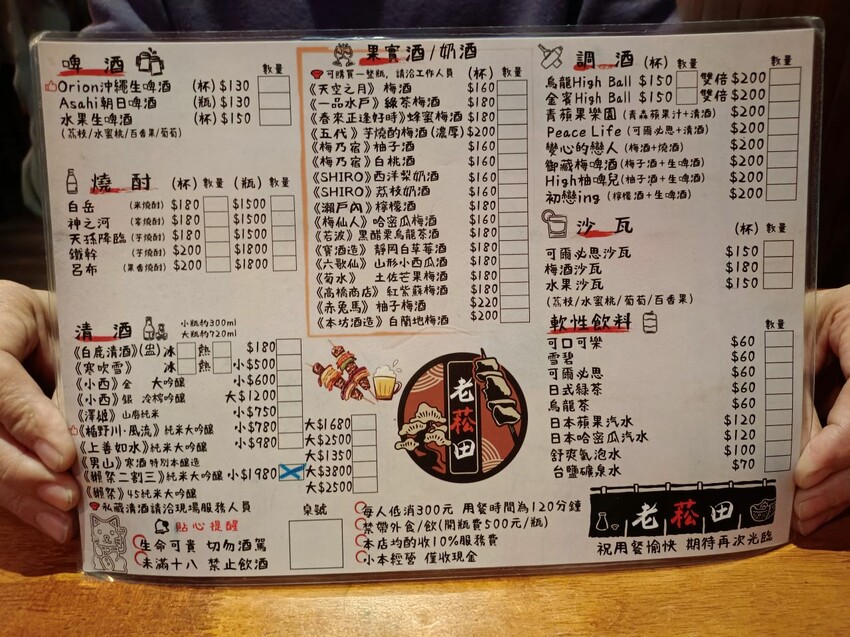 啤酒
數量
Orion沖繩生啤酒 (杯) $130
Asahi朝日啤酒 (瓶) $130
水果生啤酒 (杯) $150
(荔枝/水蜜桃/百香果/葡萄)
燒酎 (杯) 數量 (瓶) 數量
白岳 (米燒酎) $180 $1500
神之河 (麥燒酎) $180 $1500
天孫降臨 (芋燒酎) $180 $1500
鐵幹 (芋燒酎) $200 $1800
呂布 (果香燒酎) $200 $1800
清酒
小瓶約300ml
大瓶約720ml
數量
《白鹿清酒》(壺) 冰 熱 $180
《寒吹雪》 冰 熱 小$500
《小西》金 大吟釀 小$600
《小西》銀 冷榨吟釀 大$1200
《澤姬》山廢純米 小$750
《楯野川·風流》純米大吟釀 小$780 大$1680
《上善如水》純米大吟釀 小$980 大$2500
《男山》寒酒 特別本釀造 大$1350
《獺祭二割三》純米大吟釀 小$1980 大$3800
《獺祭》45純米大吟釀 大$2500
私藏清酒請洽現場服務人員
貼心提醒
生命可貴 切勿酒駕
未滿十八 禁止飲酒
桌號
果實酒/奶酒
可購買一整瓶,請洽工作人員 (杯) 數量
《天空之月》梅酒 $160
《一品水戶》綠茶梅酒 $180
《春來正逢好時》蜂蜜梅酒 $180
《五代》芋燒酎梅酒(濃厚) $200
《梅乃宿》柚子酒 $160
《梅乃宿》白桃酒 $160
《SHIRO》西洋梨奶酒 $160
《SHIRO》荔枝奶酒 $180
《瀨戶內》檸檬酒 $180
《梅仙人》哈密瓜梅酒 $160
《若波》黑醋栗烏龍茶酒 $180
《寶酒造》靜岡白草莓酒 $180
《六歌仙》山形小西瓜酒 $180
《菊水》土佐芒果梅酒 $180
《高橋商店》紅紫蘇梅酒 $180
《赤兔馬》柚子梅酒 $220
《本坊酒造》白蘭地梅酒 $200
老菘田
每人低消300元 用餐時間為120分鐘
禁帶外食/飲(開瓶費500元/瓶)
本店均酌收10%服務費
小本經營 僅收現金
調酒 (杯) 數量
烏龍High Ball $150 雙倍 $200
金賓High Ball $150 雙倍 $200
青蘋果樂園 (青森蘋果汁+清酒) $200
Peace Life (可爾必思+清酒) $200
變心的戀人 (梅酒+燒酒) $200
御藏梅啤酒 (梅子酒+生啤酒) $200
High柚啤兒 (柚子酒+生啤酒) $200
初戀ing (檸檬酒+生啤酒) $200
沙瓦 (杯) 數量
可爾必思沙瓦 $150
梅酒沙瓦 $180
水果沙瓦 $150
(荔枝/水蜜桃/葡萄/百香果)
軟性飲料 數量
可口可樂 $60
雪碧 $60
可爾必思 $60
日式綠茶 $60
烏龍茶 $60
日本蘋果汽水 $120
日本哈密瓜汽水 $120
舒爽氣泡水 $100
台鹽礦泉水 $70
老菘田
祝用餐愉快 期待再次光臨